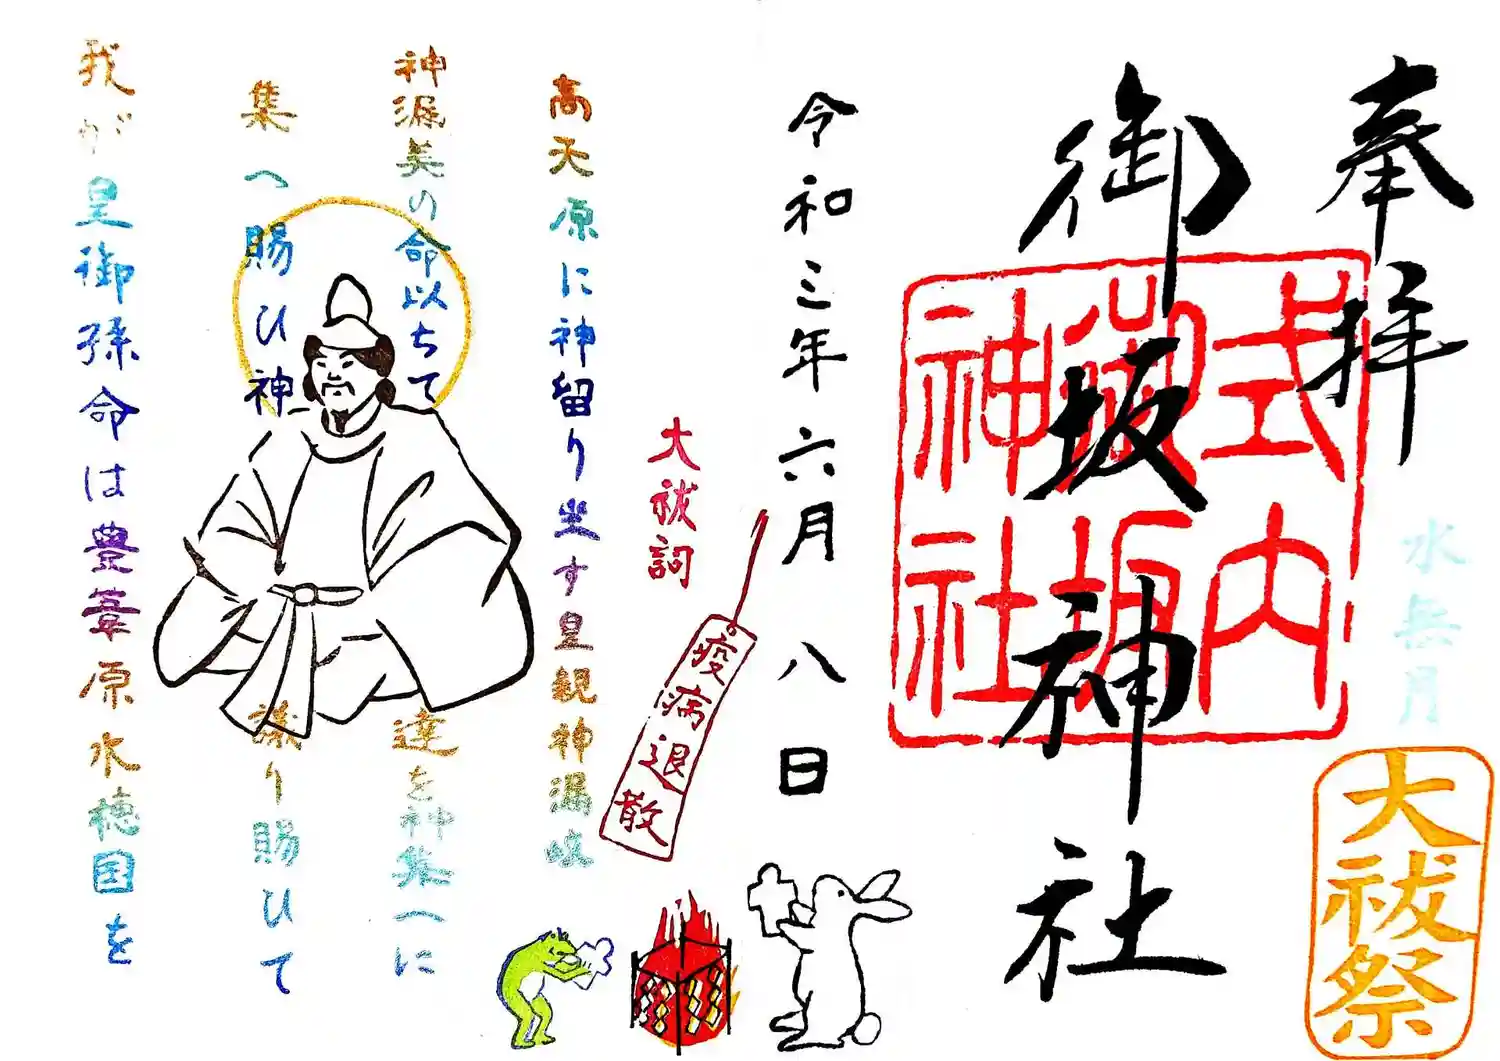 奉拝
水無月
大祓祭
御坂神社
式内
御坂
神社
令和三年六月八日
大祓詞
疫病退散
高天原に神留り坐す皇親神漏岐
神漏美の命以ちて
達を神集へに
集へ賜ひ神
議り賜ひて
我が皇御孫命は豊葦原水穂国を